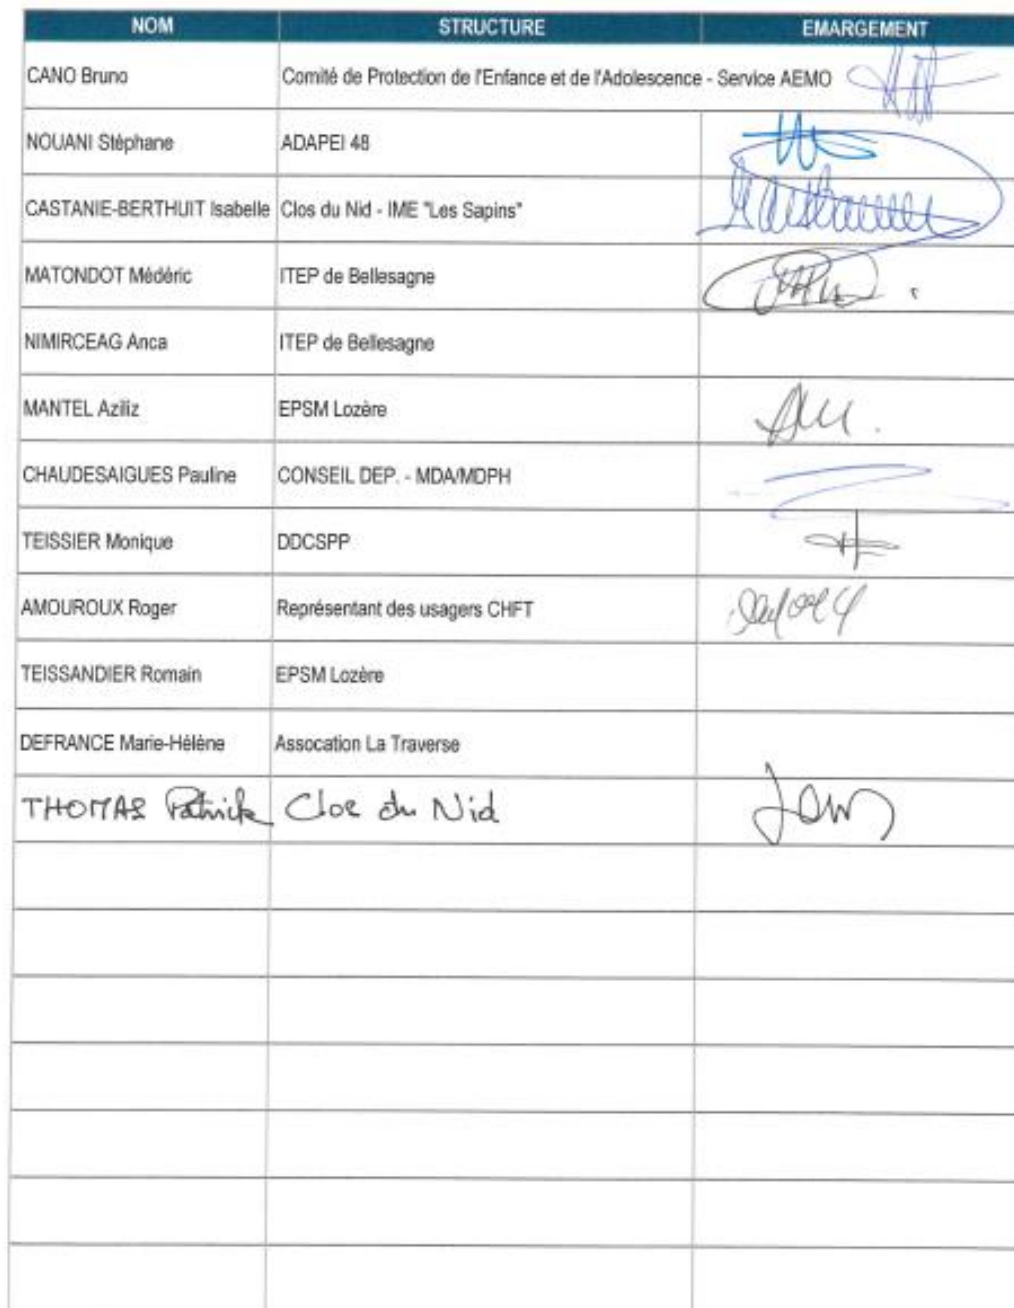 NOM STRUCTURE EMARGEMENT
CANO Bruno Comité de Protection de l'Enfance et de l'Adolescence - Service AEMO
NOUANI Stéphane ADAPEI 48
CASTANIE-BERTHUIT Isabelle Clos du Nid - IME "Les Sapins"
MATONDOT Médéric ITEP de Bellesagne
NIMIRCEAG Anca ITEP de Bellesagne
MANTEL Aziliz EPSM Lozère
CHAUDESAIGUES Pauline CONSEIL DEP. - MDA/MDPH
TEISSIER Monique DDCSPP
AMOUROUX Roger Représentant des usagers CHFT
TEISSANDIER Romain EPSM Lozère
DEFRANCE Marie-Hélène Assocation La Traverse
THOMAS Patrick Clos du Nid